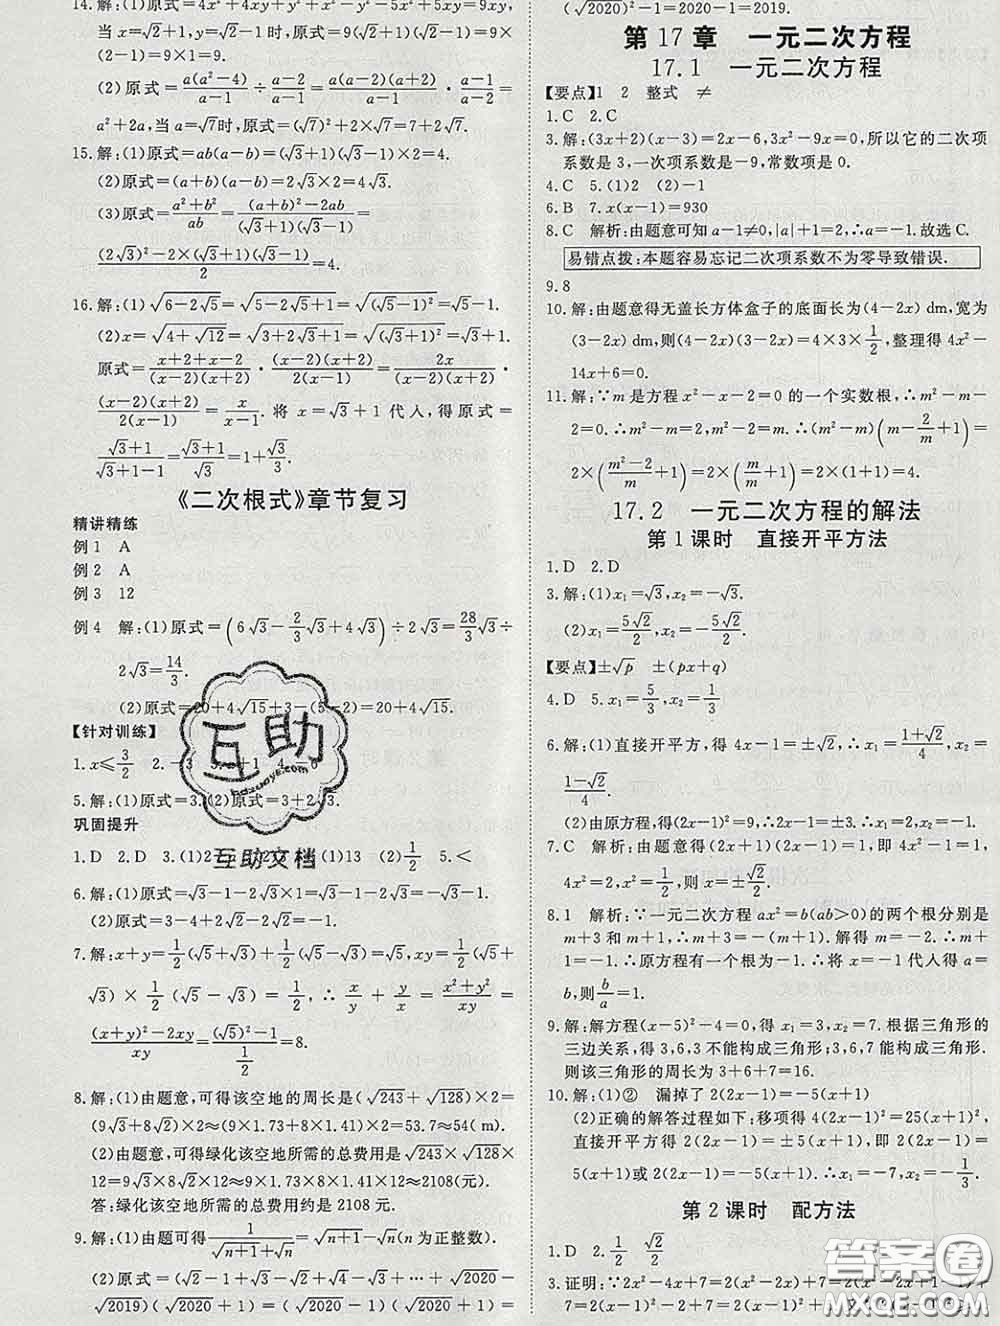 14. 解:(1)原式=4x²+4x√x²−x²+x²−5x²+5x=9xy,
当x=√2+1,y=√2−1时,原式=9xy=9(√2+1)×
(√2−1)=9×1=9.
(2)原式=a(a²−4)/(a−1)÷(a−2)/(a−1)=a(a−2)(a+2)/(a−1)·(a−1)/(a−2)=
a²+2a,当a=√7时,原式=(√7)²+2×√7=7+2√7.
15. 解:(1)原式=ab(a−b)=(√3+1)(√3−1)×2=4.
(2)原式=(a+b)(a−b)=2√3×2=4√3.
(3)原式=(a²+b²)/ab=((a+b)²−2ab)/((√3+1)(√3−1))=
((2√3)²−2×(√3+1)(√3−1))/2=4.
16. 解:(1)√(6−2√5)=√(5−2√5+1)=√((√5−1)²)=√5−1.
(2)x=√(4+√12)=√(3+2√3+1)=√((√3+1)²)=√3+1.
原式=(x+2+x−2)/((x−2)(x+2))·((x−2)(x+2))/(2(x−1))=2x/((x−2)(x+2))·
((x−2)(x+2))/(2(x−1))=x/(x−1). 将x=√3+1代人,得原式=
(√3+1)/(√3+1−1)=(√3+1)/√3=1+√3/3.
《二次根式》章节复习
精讲精练
例1 A
例2 A
例3 12
例4 解:(1)原式=(6√3−2/3√3+4√3)÷2√3=28/3√3÷
2√3=14/3.
(2)原式=20+4√15+3−(5−2)=20+4√15.
【针对训练】
1. x≤3/2 2. −3
5. 解:(1)原式=3. (2)原式=3+2√3.
巩固提升
1. D 2. D (1)13 (2)1/2 5. <
6. 解:(1)原式=√3−1−2√3×1=√3−1−2√3=−1−√3.
(2)原式=3−4+2√2−√2=√2−1.
7. 解:x+y=1/2(√5+√3)+1/2(√5−√3)=√5,xy=1/2(√5
+√3)×1/2(√5−√3)=1/2. ∴x/y+y/x=(x²+y²)/xy=
((x+y)²−2xy)/xy=((√5)²−1)/(1/2)=8.
8. 解:(1)由题意,可得该空地的周长是(√243+√128)×2=
(9√3+8√2)×2≈(9×1.73+8×1.41)×2=53.7≈54(m).
(2)由题意,可得绿化该空地所需的总费用是√243×√128×
12=9√3×8√2×12≈9×1.73×8×1.41×12≈2108(元).
答:绿化该空地所需的总费用约是2108元.
9. 解:(1)由题可得1/(√(n+1)+√n)=√(n+1)−√n(n为正整数).
(2)原式=(√2−1+√3−√2+√4−√3+⋯+√2020−
√2019)(√2020+1)=(√2020−1)(√2020+1)=
(√2020)²−1=2020−1=2019.
第17章 一元二次方程
17.1 一元二次方程
【要点】1 2 整式 ≠
1. C 2. C
3. 解:(3x+2)(x−3)=2x−6,3x²−9x=0,所以它的二次项
系数是3,一次项系数是−9,常数项是0.
4. C 5. (1)2 (2)−1
6. B 7. x(x−1)=930
8. C 解析:由题意可知a−1≠0,|a|+1=2,∴a=−1. 故选C.
易错点拨:本题容易忘记二次项系数不为零导致错误.
9. 8
10. 解:由题意得无盖长方体盒子的底面长为(4−2x) dm,宽为
(3−2x) dm,则(4−2x)(3−2x)=4×3×1/2,整理得4x²−
14x+6=0.
11. 解:∵m是方程x²−x−2=0的一个实数根,∴m²−m−
2=0. ∴m²−m=2,m²−2=m. ∴(m²−m)(m−2/m+1)=
2×((m²−2)/m+1)=2×(m/m+1)=2×(1+1)=4.
17.2 一元二次方程的解法
第1课时 直接开平方法
1. D 2. D
3. 解:(1)x₁=√3,x₂=−√3.
(2)x₁=5√2/2,x₂=−5√2/2.
【要点】±√p ±(px+q)
4. D 5. x₁=5/3,x₂=1/3
6. 解:(1)直接开平方,得4x−1=±√2,∴x₁=(1+√2)/4,x₂=
(1−√2)/4.
(2)由原方程,得(2x−1)²=9,∴2x−1=±3. ∴x₁=2,x₂=−1.
7. C 解析:由题意得(2x+1)(2x−1)=1,即4x²−1=1,
∴4x²=2,∴x²=1/2,∴x=±√2/2.
8. 1 解析:∵一元二次方程ax²=b(ab>0)的两个根分别是
m+3和m+1,∴m+3=−(m+1). 解得m=−2. ∴m+
1=−1. ∴原方程有一个根为−1. ∴将x=−1代人得a=
b,则b/a=1.
9. 解:解方程(x−5)²−4=0,得x₁=3,x₂=7. 根据三角形的
三边关系,得3,6,3不能构成三角形;3,6,7能构成三角形.
则该三角形的周长为3+6+7=16.
10. 解:(1)② 漏掉了2(2x−1)=−5(x+1)
(2)正确的解答过程如下:移项得4(2x−1)²=25(x+1)²,
直接开平方得2(2x−1)=±5(x+1),即2(2x−1)=
5(x+1)或2(2x−1)=−5(x+1). ∴x₁=−7,x₂=−1/3.
第2课时 配方法
1. D 2. 1/2 √2/2
3. 证明:∵2x²−4x+7=2(x²−2x)+7=2(x²−2x+1−1)+
互助
互助文档
答案圈
MXQE.COM